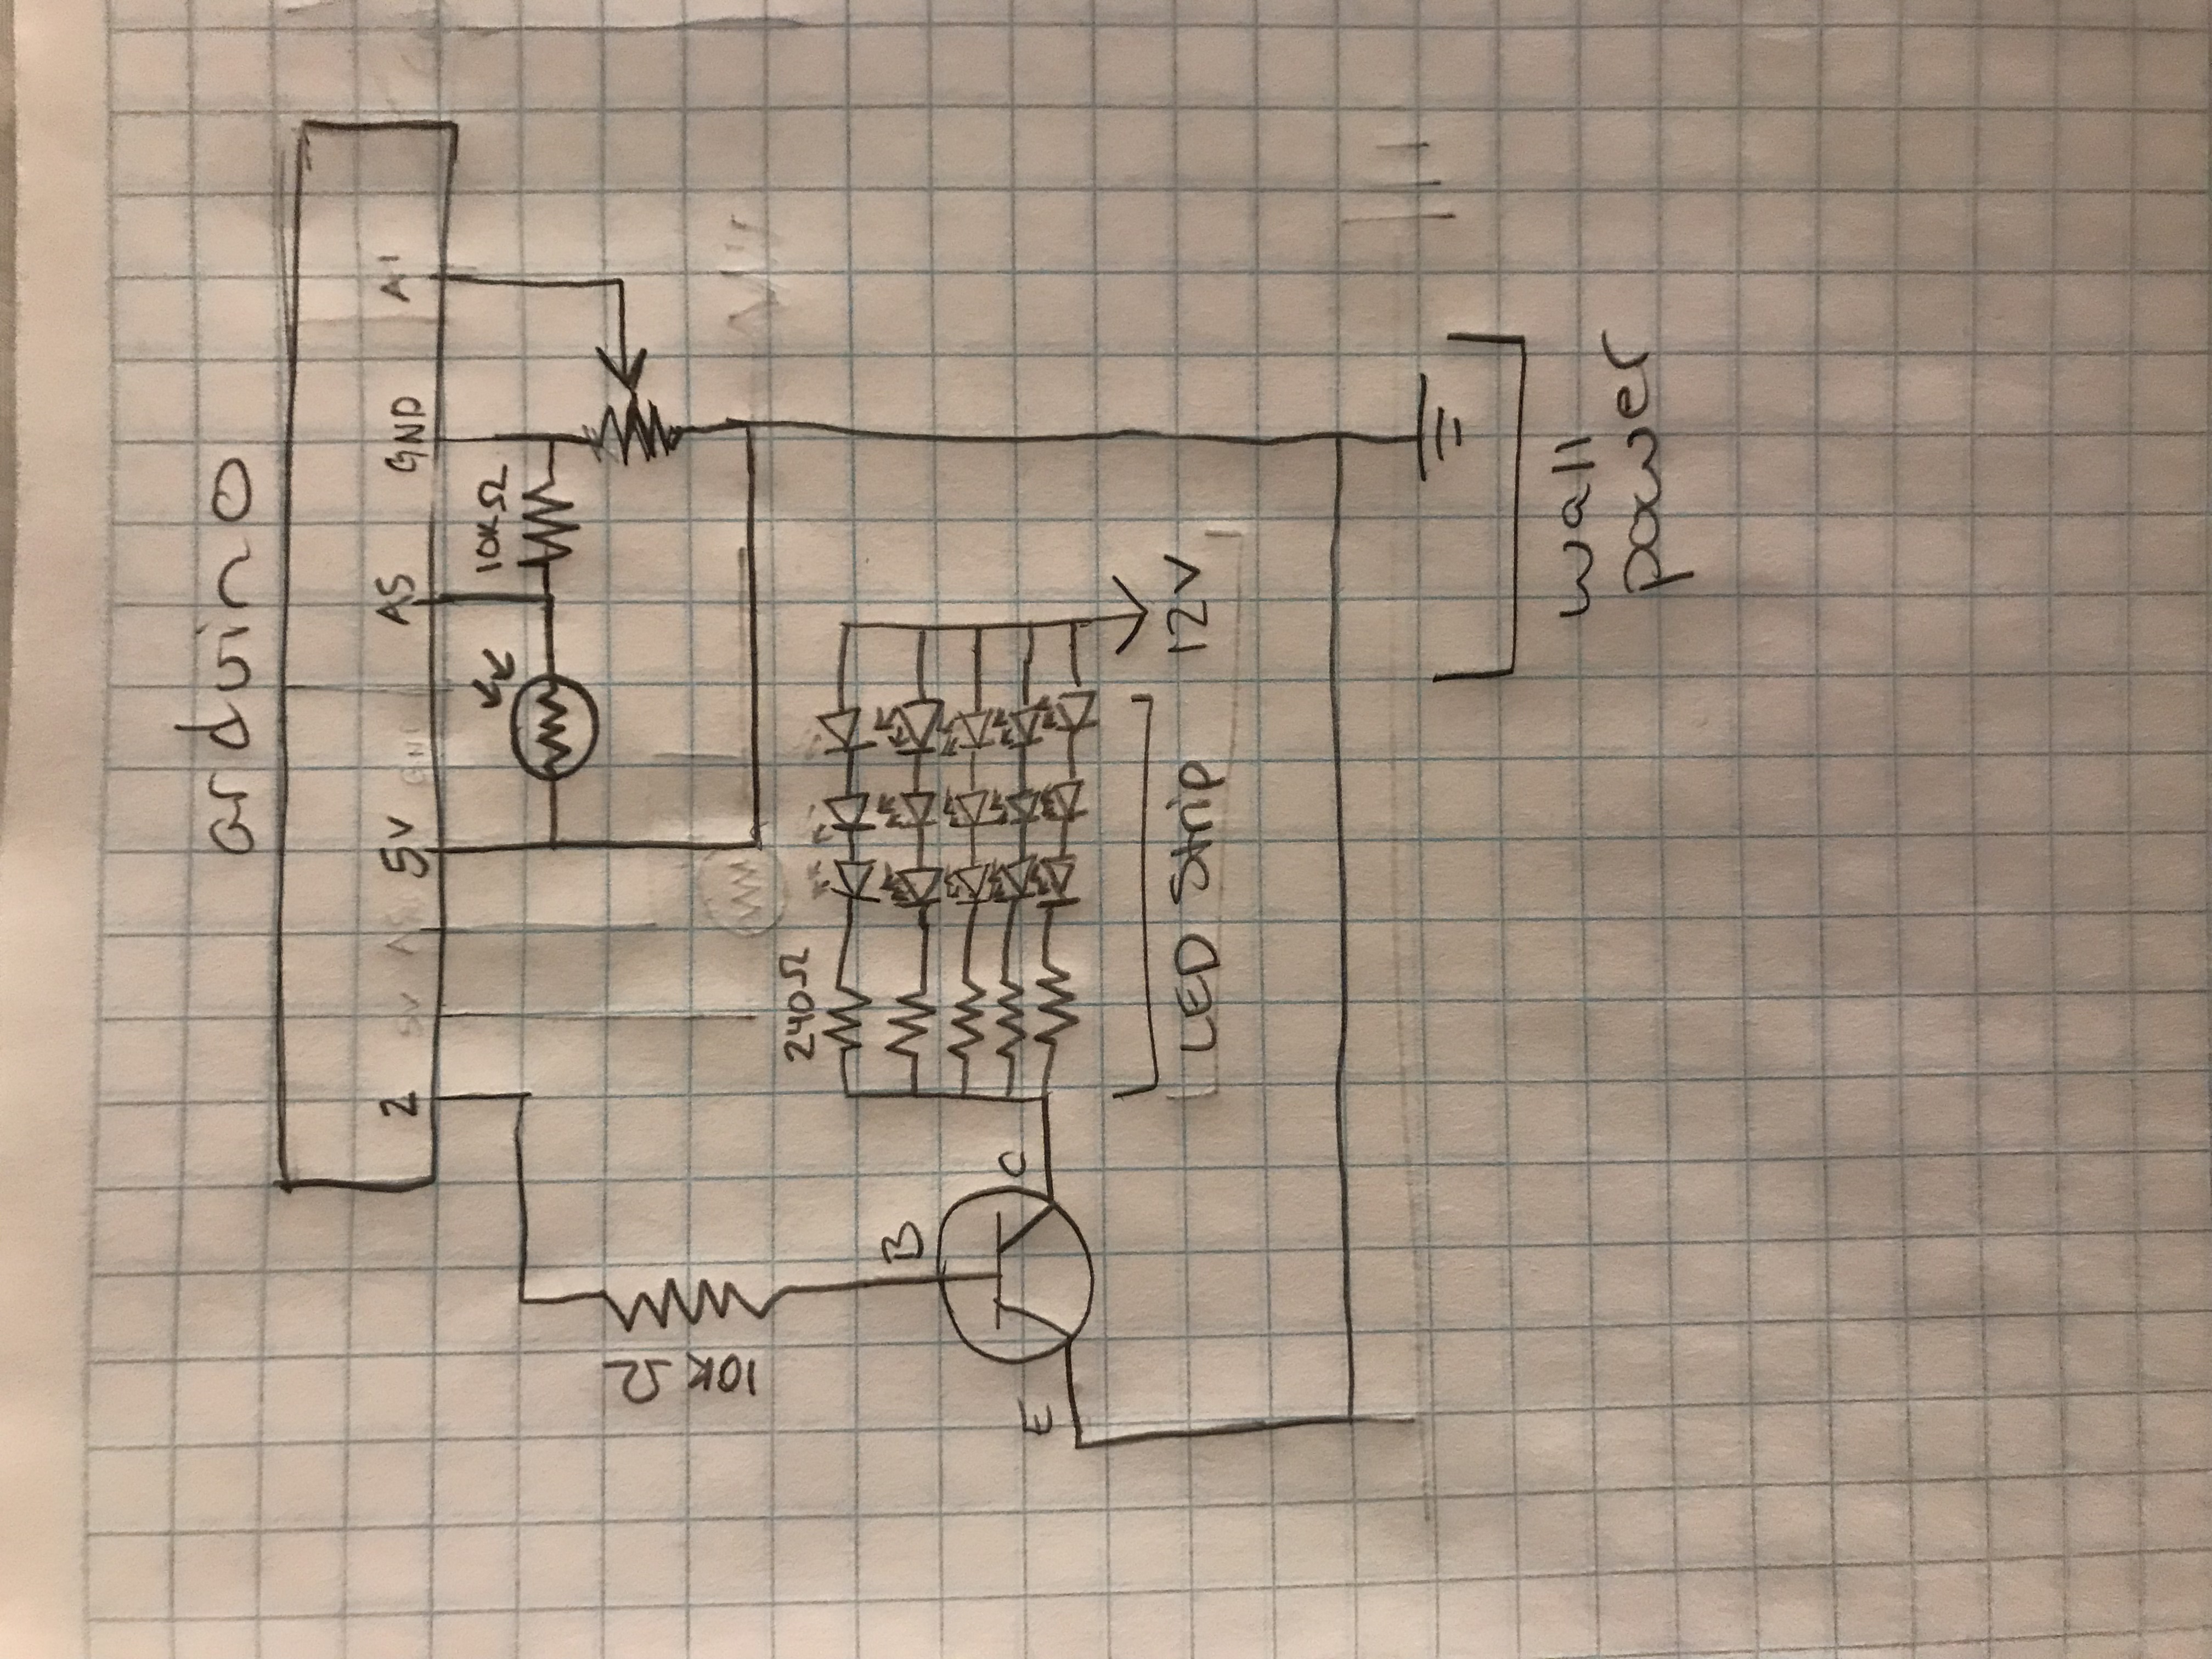 arduino
2 5V A5 GND A1
10KΩ
10KΩ
240Ω
B
E C
LED Strip 12V
wall
power